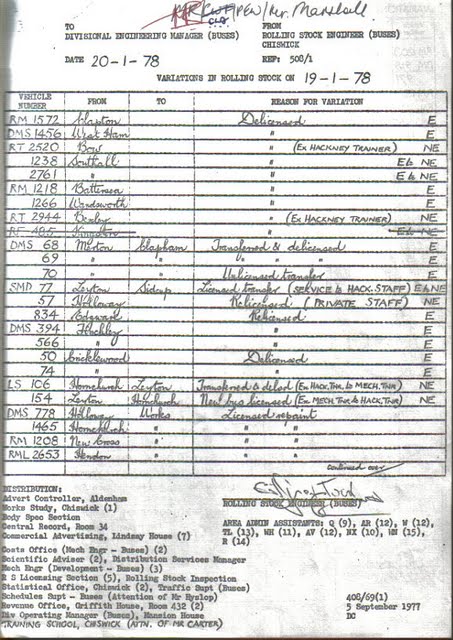 PEN/Mr. Marshall
TO FROM
DIVISIONAL ENGINEERING MANAGER (BUSES) ROLLING STOCK ENGINEER (BUSES)
CHISWICK
DATE 20-1-78 REF: 508/1
VARIATIONS IN ROLLING STOCK ON 19-1-78
VEHICLE NUMBER FROM TO REASON FOR VARIATION
RM 1572 Clapton Delicensed E
DMS 1456 West Ham " E
RT 2520 Bow " (Ex HACKNEY TRAINER) NE
1238 Southall " E& NE
2761 " " E& NE
RM 1218 Battersea " E
1266 Wandsworth " E
RT 2944 Bexley " (Ex HACKNEY TRAINER) NE
RF 495 Kingston " E& NE
DMS 68 Merton Clapham Transferred & delicensed E
69 " " " " " E
70 " " Unlicensed transfer E
SMD 77 Leyton Sidcup Licensed transfer (SERVICE & HACK. STAFF) E& NE
57 Holloway Relicensed (PRIVATE STAFF) NE
834 Edgware Relicensed E
DMS 394 Finchley " E
566 " " E
50 Cricklewood Delicensed E
74 " " E
LS 106 Hornchurch Leyton Transferred & delcd (Ex. HACK. TNR. & MECH. TNR) NE
154 Leyton Hornchurch New bus licensed (Ex. MECH. TNR & HACK. TNR) NE
DMS 778 Holloway Works Licensed repaint
1465 Hornchurch " " "
RM 1208 New Cross " " "
RML 2653 Hendon " " "
continued over
DISTRIBUTION:
Advert Controller, Aldenham
Works Study, Chiswick (1)
Body Spec Section
Central Record, Room 34
Commercial Advertising, Lindsey House (7)
Costs Office (Mech Engr - Buses) (2)
Scientific Adviser (2), Distribution Services Manager
Mech Engr (Development - Buses) (3)
R S Licensing Section (5), Rolling Stock Inspection
Statistical Office, Chiswick (2), Traffic Supt (Buses)
Schedules Supt - Buses (Attention of Mr Hyslop)
Revenue Office, Griffith House, Room 432 (2)
Div Operating Manager (Buses), Mansion House
TRAINING SCHOOL, CHISWICK (ATTN. OF MR CARTER)
ROLLING STOCK ENGINEER (BUSES)
AREA ADMIN ASSISTANTS: Q (9), AR (12), W (12),
TL (13), WH (11), AV (12), NX (10), HN (15),
R (14)
408/69(1)
5 September 1977
DC